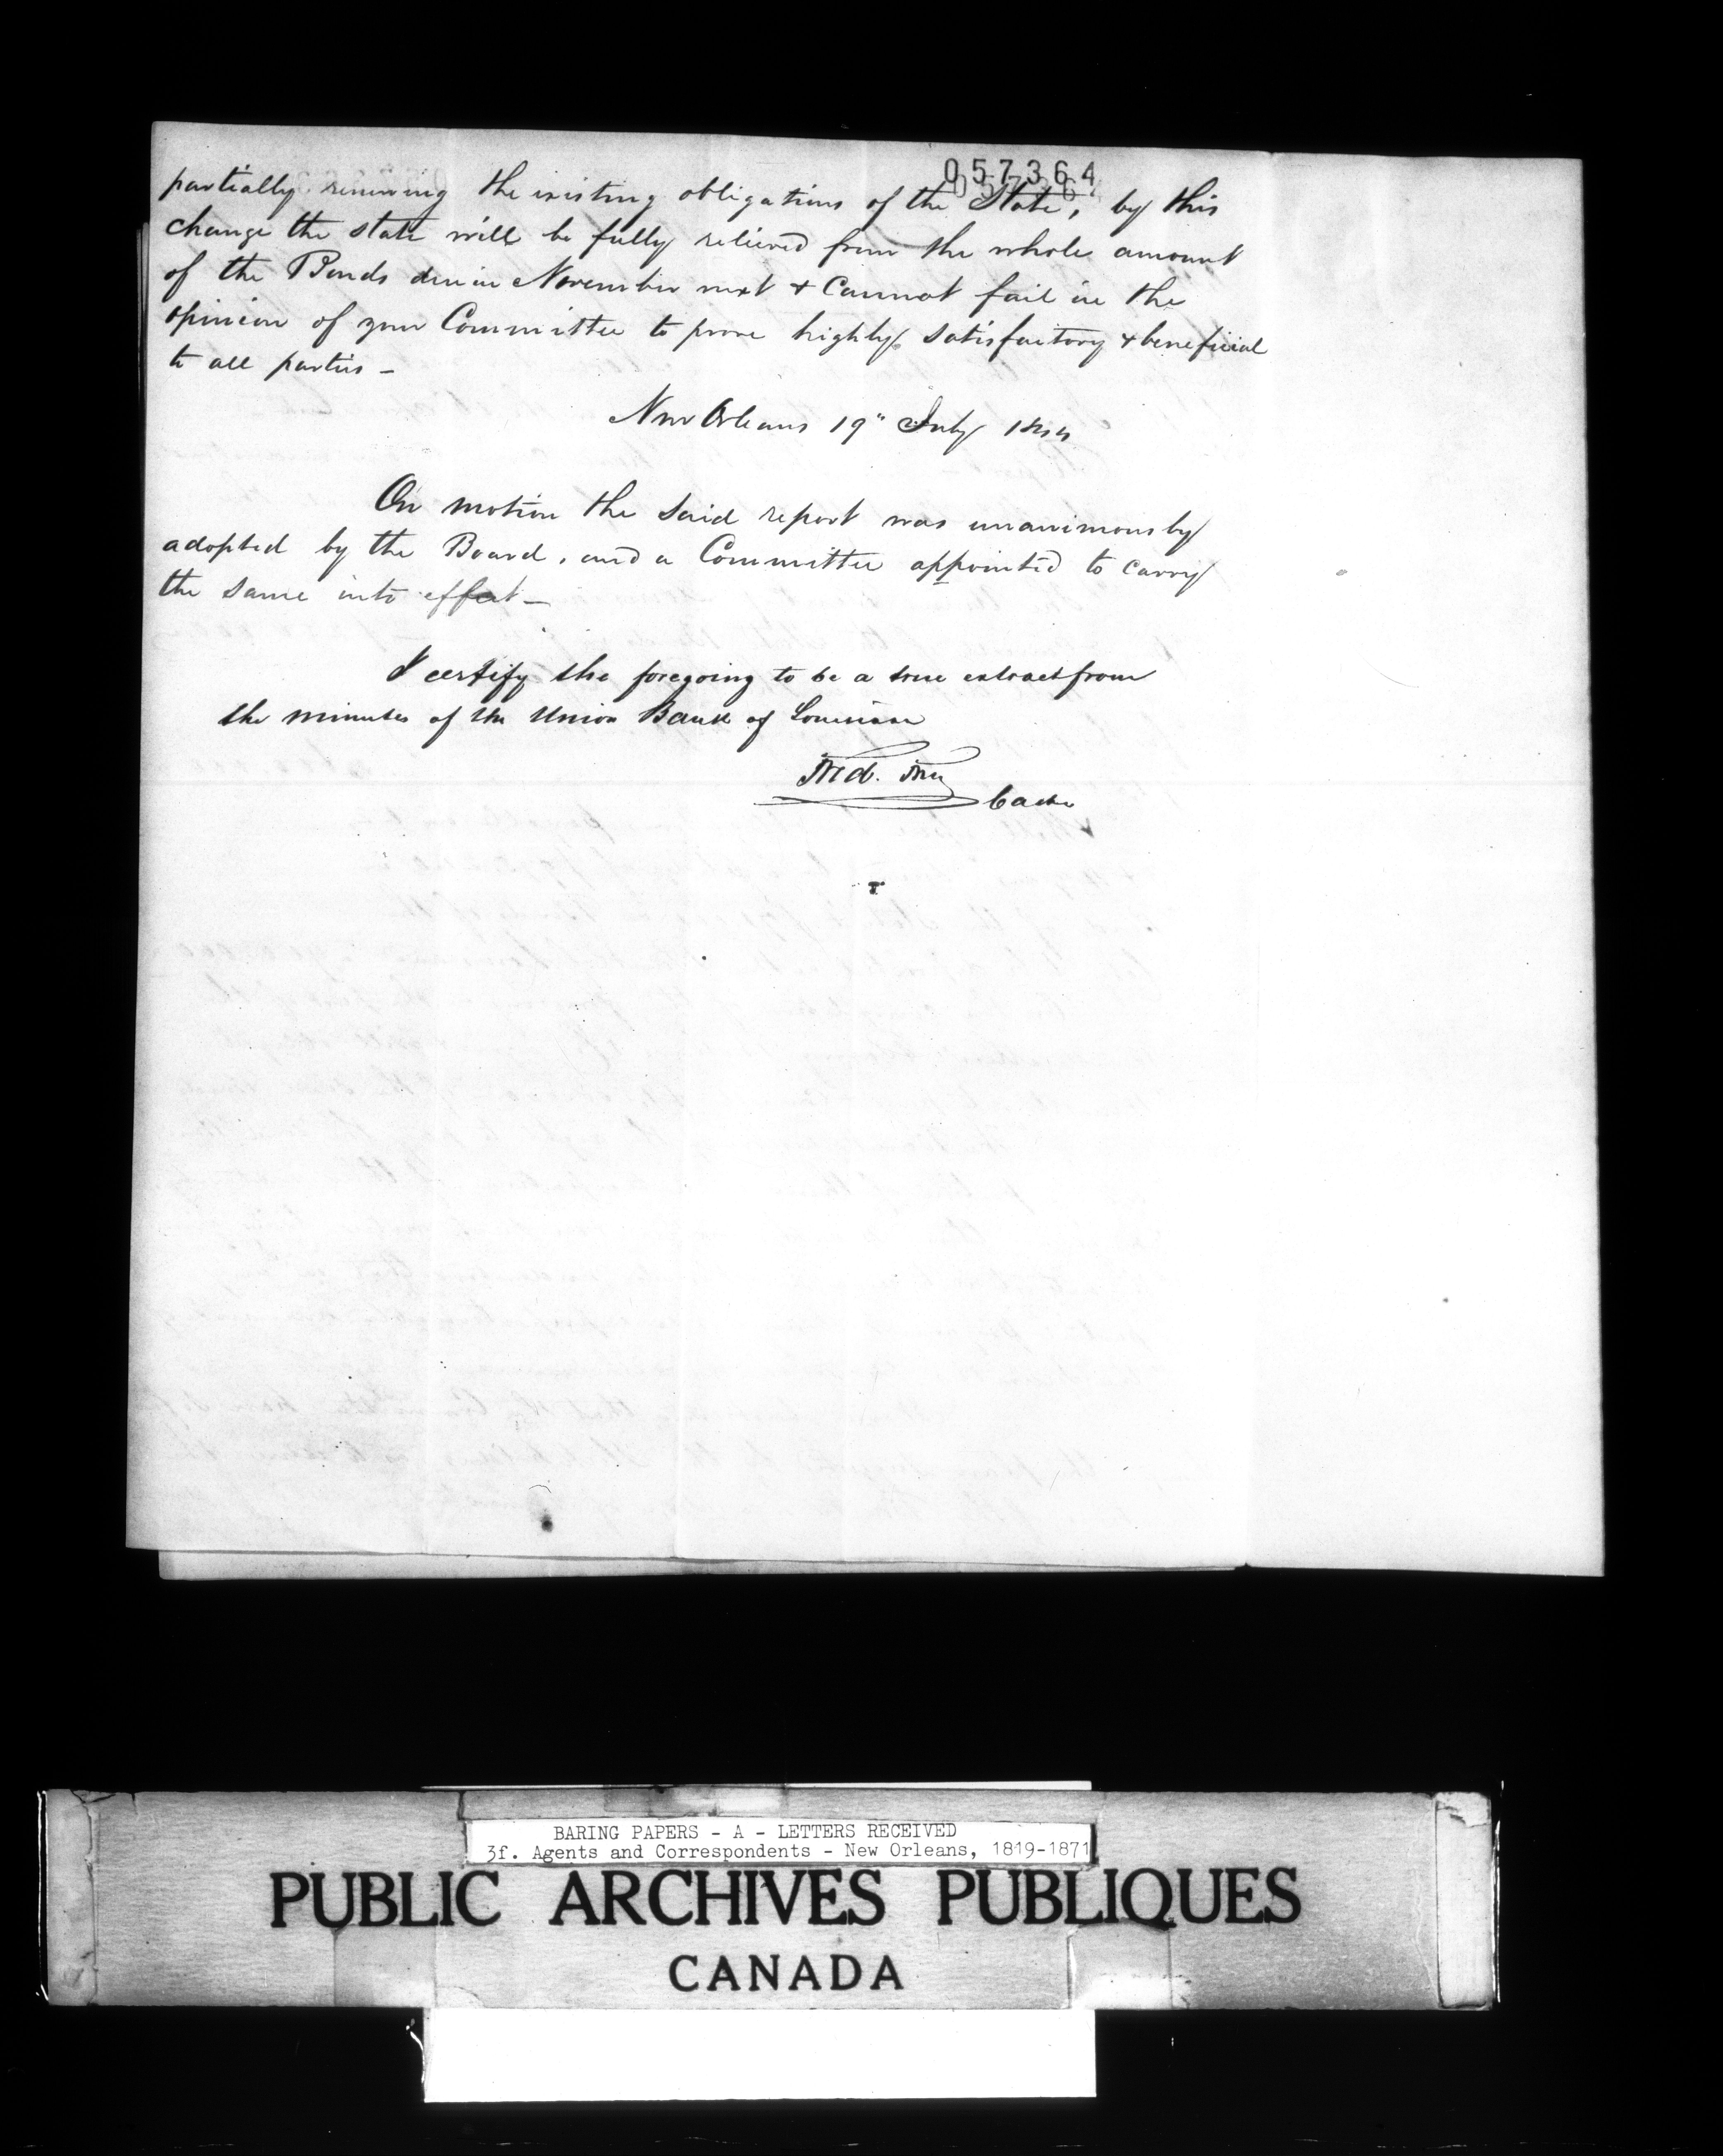 057364
partially renewing the existing obligations of the State, by this
change the state will be fully relieved from the whole amount
of the Bonds due in November next & Cannot fail in the
opinion of your Committee to prove highly satisfactory & beneficial
to all parties –
New Orleans 19" July 1844
On motion the said report was unanimously
adopted by the Board, and a Committee appointed to carry
the same into effect –
I certify the foregoing to be a true extract from
the minutes of the Union Bank of Louisiana
Cashr
BARING PAPERS - A - LETTERS RECEIVED
3f. Agents and Correspondents - New Orleans, 1819-1871
PUBLIC ARCHIVES PUBLIQUES
CANADA